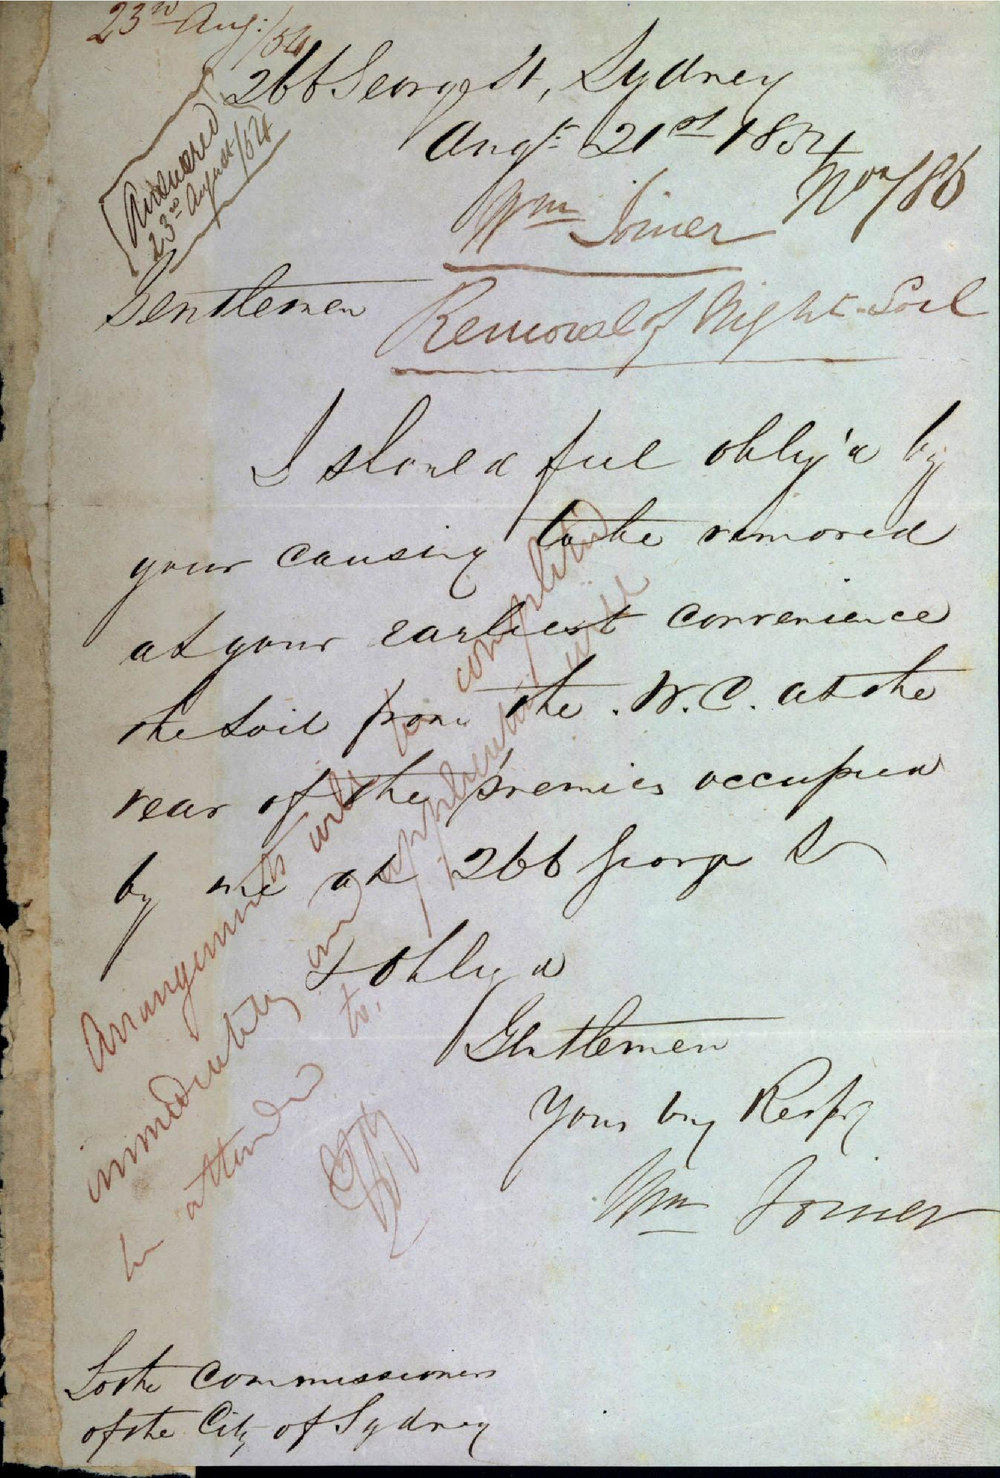 23rd Aug:/54
266 George St, Sydney
Augt 21st 1854
Answered
23rd August/54
No 786
Wm Joiner
Gentlemen
Removal of Night-Soil
I should feel oblig'd by
your causing to be removed
at your earliest convenience
the soil from the W.C. at the
rear of the premises occupied
by me at 266 George St
& oblig'd
Gentlemen
Your Resply
Wm Joiner
Arrangements will be completed
immediately and application will
be attended to.
To the Commissioners
of the City of Sydney